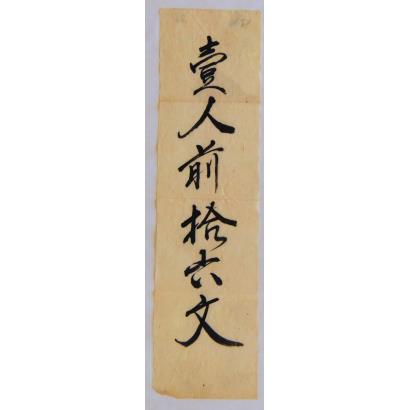 壹人前拾六文